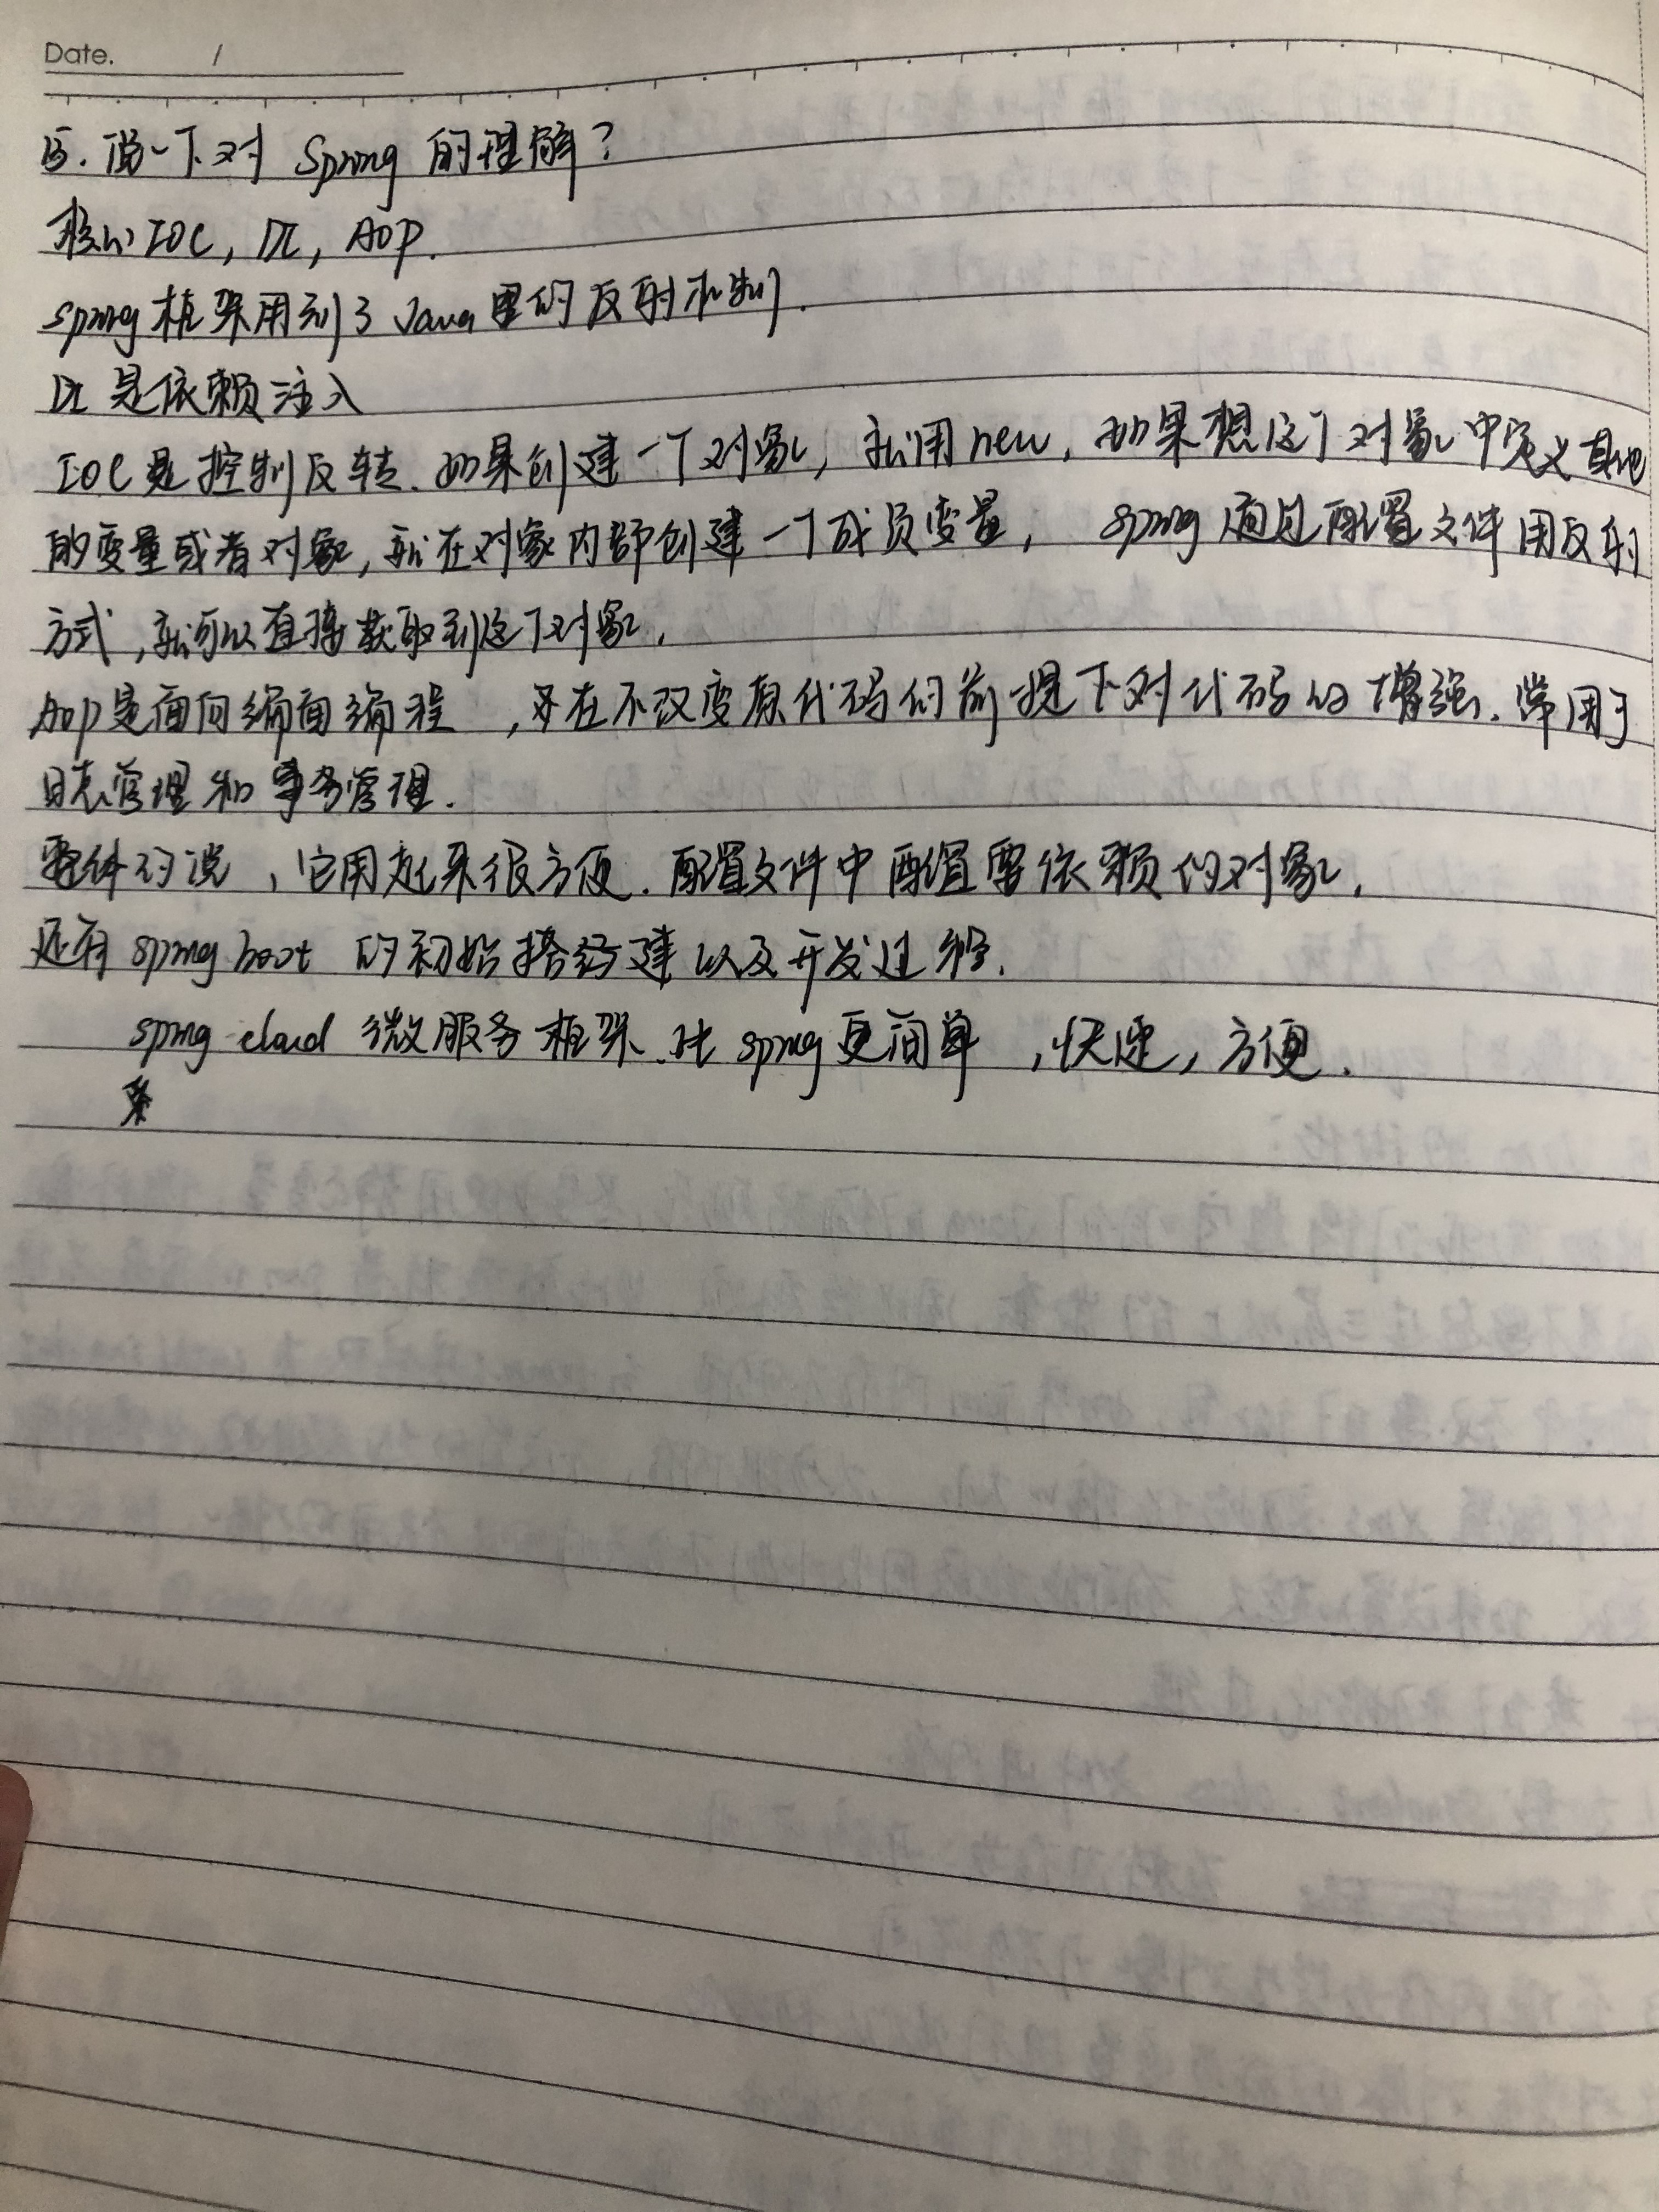 Date. /
15. 说一下对 Spring 的理解?
核心 IOC, DI, AOP.
Spring 框架用到了 Java 里的反射机制.
DI 是依赖注入
IOC 是控制反转. 如果创建一个对象, 就用 new, 如果想这个对象中定义其他
的变量或者对象, 就在对象内部创建一个成员变量, spring 通过配置文件用反射
方式, 就可以直接获取到这个对象.
Aop 是面向编面编程 , 是在不改变原代码的前提下对代码的增强. 常用于
日志管理和事务管理.
整体的说 , 它用起来很方便. 配置文件中配置需依赖的对象.
还有 spring boot 的初始搭建以及开发过程.
spring cloud 微服务框架. 比 spring 更简单 , 快速, 方便.